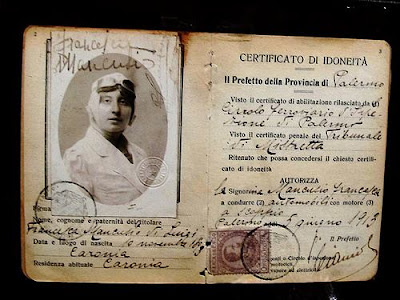 Francesca
Mancusio
Firma
Nome, cognome e paternità del titolare
Francesca Mancusio di Luigi
Data e luogo di nascita 10 novembre
Caronia
Residenza abituale Caronia
3
CERTIFICATO DI IDONEITÀ
Il Prefetto della Provincia di Palermo
Visto il certificato di abilitazione rilasciato da (1)
Circolo Ferroviario d'Ispe
zione di Palermo
Visto il certificato penale del Tribunale
di Mistretta
Ritenuto che possa concedersi il chiesto certifi-
cato di idoneità
AUTORIZZA
la Signorina Mancusio Francesca
a condurre (2) automobili con motore (3)
a scoppio
Palermo 5 giugno 1913
Il Prefetto